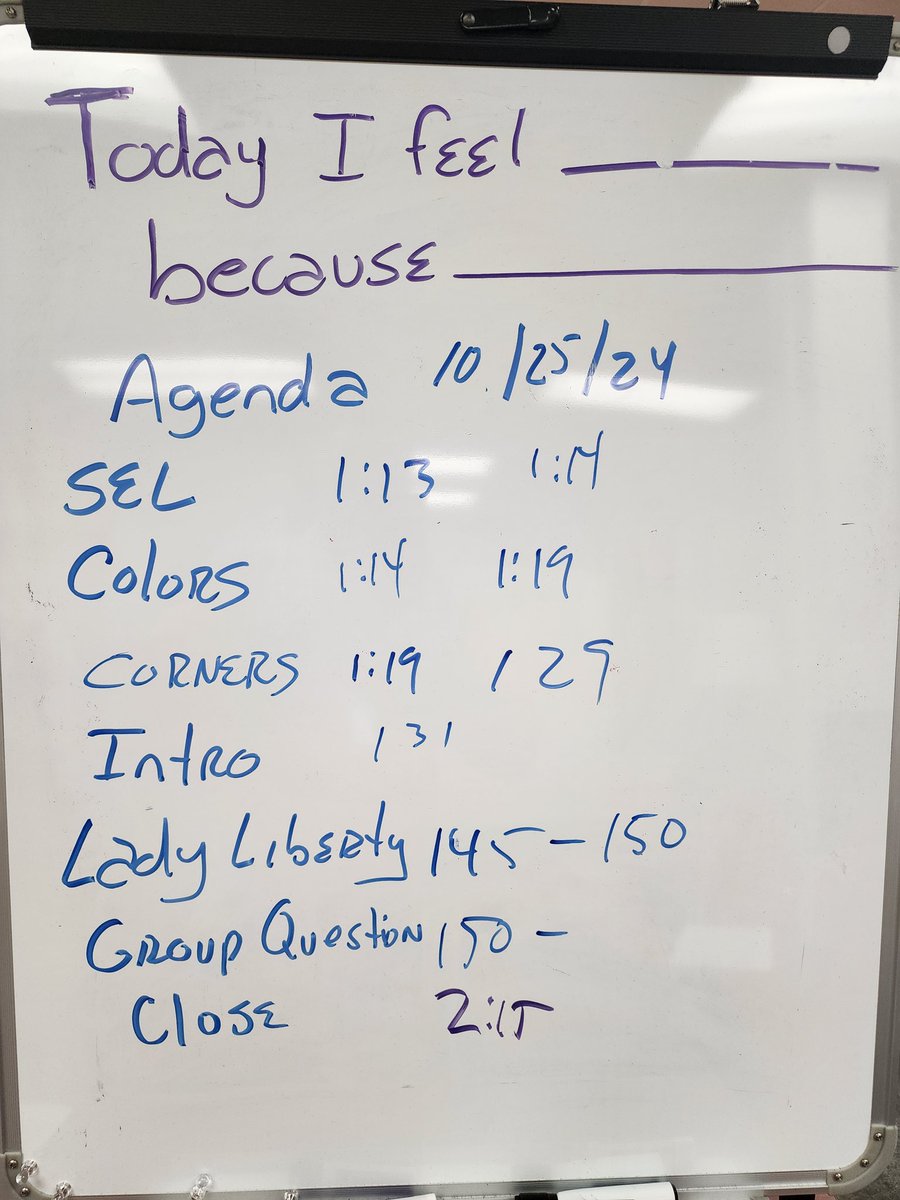 Today I feel ________
because ________
Agenda 10/25/24
SEL 1:13 1:14
Colors 1:14 1:19
CORNERS 1:19 129
Intro 131
Lady Liberty 145-150
Group Question 150-
Close 2:15